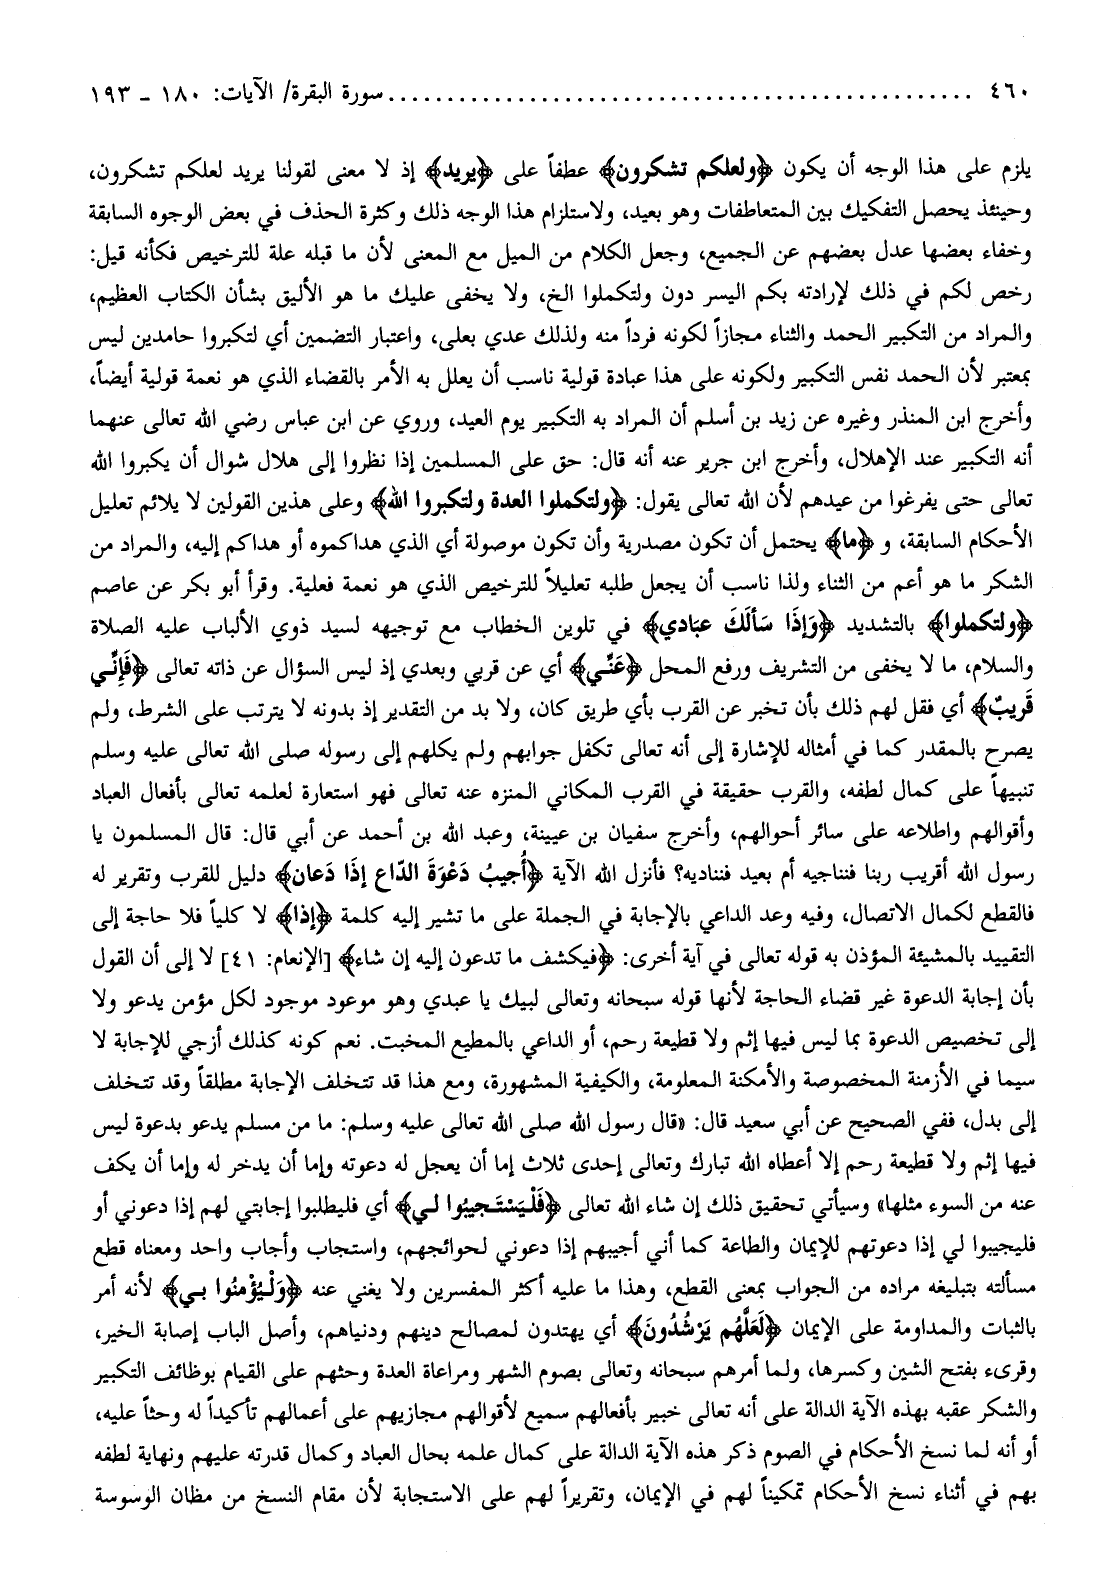 ٤٦٠ ................................................ سورة البقرة/ الآيات: ١٨٠ ـ ١٩٣
يلزم على هذا الوجه أن يكون ﴿ولعلكم تشكرون﴾ عطفاً على ﴿يريد﴾ إذ لا معنى لقولنا يريد لعلكم تشكرون،
وحينئذ يحصل التفكيك بين المتعاطفات وهو بعيد، ولاستلزام هذا الوجه ذلك وكثرة الحذف في بعض الوجوه السابقة
وخفاء بعضها عدل بعضهم عن الجميع، وجعل الكلام من الميل مع المعنى لأن ما قبله علة للترخيص فكأنه قيل:
رخص لكم في ذلك لإرادته بكم اليسر دون ولتكملوا الخ، ولا يخفى عليك ما هو الأليق بشأن الكتاب العظيم،
والمراد من التكبير الحمد والثناء مجازاً لكونه فرداً منه ولذلك عدي بعلى، واعتبار التضمين أي لتكبروا حامدين ليس
بمعتبر لأن الحمد نفس التكبير ولكونه على هذا عبادة قولية ناسب أن يعلل به الأمر بالقضاء الذي هو نعمة قولية أيضاً،
وأخرج ابن المنذر وغيره عن زيد بن أسلم أن المراد به التكبير يوم العيد، وروي عن ابن عباس رضي الله تعالى عنهما
أنه التكبير عند الإهلال، وأخرج ابن جرير عنه أنه قال: حق على المسلمين إذا نظروا إلى هلال شوال أن يكبروا الله
تعالى حتى يفرغوا من عيدهم لأن الله تعالى يقول: ﴿ولتكملوا العدة ولتكبروا الله﴾ وعلى هذين القولين لا يلائم تعليل
الأحكام السابقة، و ﴿ما﴾ يحتمل أن تكون مصدرية وأن تكون موصولة أي الذي هداكموه أو هداكم إليه، والمراد من
الشكر ما هو أعم من الثناء ولذا ناسب أن يجعل طلبه تعليلاً للترخيص الذي هو نعمة فعلية. وقرأ أبو بكر عن عاصم
﴿ولتكملوا﴾ بالتشديد ﴿وَإِذَا سَأَلَكَ عبَادي﴾ في تلوين الخطاب مع توجيهه لسيد ذوي الألباب عليه الصلاة
والسلام، ما لا يخفى من التشريف ورفع المحل ﴿عَنِّي﴾ أي عن قربي وبعدي إذ ليس السؤال عن ذاته تعالى ﴿فَإِنِّي
قَريبٌ﴾ أي فقل لهم ذلك بأن تخبر عن القرب بأي طريق كان، ولا بد من التقدير إذ بدونه لا يترتب على الشرط، ولم
يصرح بالمقدر كما في أمثاله للإشارة إلى أنه تعالى تكفل جوابهم ولم يكلهم إلى رسوله صلى الله تعالى عليه وسلم
تنبيهاً على كمال لطفه، والقرب حقيقة في القرب المكاني المنزه عنه تعالى فهو استعارة لعلمه تعالى بأفعال العباد
وأقوالهم واطلاعه على سائر أحوالهم، وأخرج سفيان بن عيينة، وعبد الله بن أحمد عن أبي قال: قال المسلمون يا
رسول الله أقريب ربنا فنناجيه أم بعيد فنناديه؟ فأنزل الله الآية ﴿أُجيبُ دَعْوَةَ الدّاع إذَا دَعان﴾ دليل للقرب وتقرير له
فالقطع لكمال الاتصال، وفيه وعد الداعي بالإجابة في الجملة على ما تشير إليه كلمة ﴿إذا﴾ لا كلياً فلا حاجة إلى
التقييد بالمشيئة المؤذن به قوله تعالى في آية أخرى: ﴿فيكشف ما تدعون إليه إن شاء﴾ [الإنعام: ٤١] لا إلى أن القول
بأن إجابة الدعوة غير قضاء الحاجة لأنها قوله سبحانه وتعالى لبيك يا عبدي وهو موعود موجود لكل مؤمن يدعو ولا
إلى تخصيص الدعوة بما ليس فيها إثم ولا قطيعة رحم، أو الداعي بالمطيع المخبت. نعم كونه كذلك أزجي للإجابة لا
سيما في الأزمنة المخصوصة والأمكنة المعلومة، والكيفية المشهورة، ومع هذا قد تتخلف الإجابة مطلقاً وقد تتخلف
إلى بدل، ففي الصحيح عن أبي سعيد قال: «قال رسول الله صلى الله تعالى عليه وسلم: ما من مسلم يدعو بدعوة ليس
فيها إثم ولا قطيعة رحم إلا أعطاه الله تبارك وتعالى إحدى ثلاث إما أن يعجل له دعوته وإما أن يدخر له وإما أن يكف
عنه من السوء مثلها» وسيأتي تحقيق ذلك إن شاء الله تعالى ﴿فَلْيَسْتَجيبُوا لي﴾ أي فليطلبوا إجابتي لهم إذا دعوني أو
فليجيبوا لي إذا دعوتهم للإيمان والطاعة كما أني أجيبهم إذا دعوني لحوائجهم، واستجاب وأجاب واحد ومعناه قطع
مسألته بتبليغه مراده من الجواب بمعنى القطع، وهذا ما عليه أكثر المفسرين ولا يغني عنه ﴿وَلْيُؤْمنُوا بي﴾ لأنه أمر
بالثبات والمداومة على الإيمان ﴿لَعَلَّهُم يَرْشُدُونَ﴾ أي يهتدون لمصالح دينهم ودنياهم، وأصل الباب إصابة الخير،
وقرىء بفتح الشين وكسرها، ولما أمرهم سبحانه وتعالى بصوم الشهر ومراعاة العدة وحثهم على القيام بوظائف التكبير
والشكر عقبه بهذه الآية الدالة على أنه تعالى خبير بأفعالهم سميع لأقوالهم مجازيهم على أعمالهم تأكيداً له وحثاً عليه،
أو أنه لما نسخ الأحكام في الصوم ذكر هذه الآية الدالة على كمال علمه بحال العباد وكمال قدرته عليهم ونهاية لطفه
بهم في أثناء نسخ الأحكام تمكيناً لهم في الإيمان، وتقريراً لهم على الاستجابة لأن مقام النسخ من مظان الوسوسة